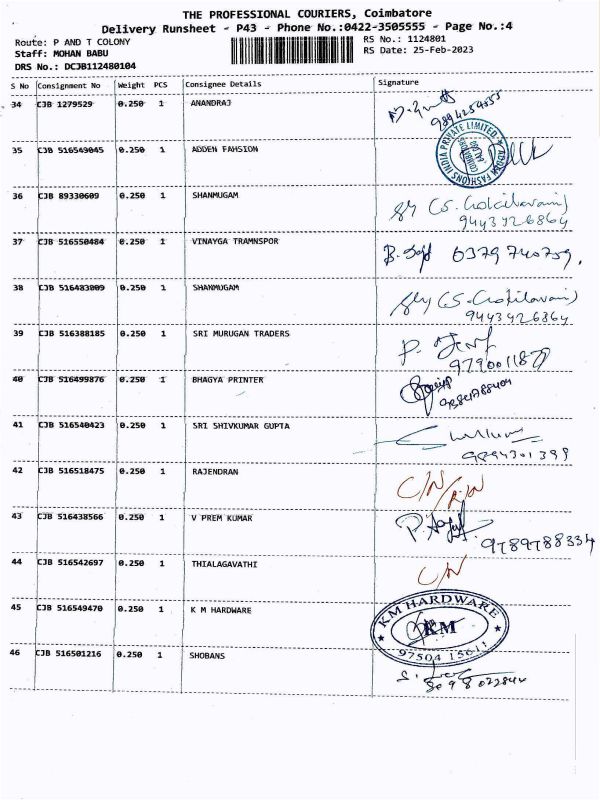 THE PROFESSIONAL COURIERS, Coimbatore
Delivery Runsheet - P43 - Phone No.:0422-3505555 - Page No.:4
Route: P AND T COLONY
RS No.: 1124801
Staff: MOHAN BABU
RS Date: 25-Feb-2023
DRS No.: DCJB112480104
S No Consignment No Weight PCS Consignee Details Signature
34 CJB 1279529 0.250 1 ANANDRAJ
35 CJB 516549045 0.250 1 ADDEN FAHSION
ADDEN FASHIONS INDIA PRIVATE LIMITED
36 CJB 89330609 0.250 1 SHANMUGAM
(S. Gokilavani)
9443426864
37 CJB 516550484 0.250 1 VINAYGA TRAMNSPOR 6379740759.
38 CJB 516483009 0.250 1 SHANMUGAM
(S. Gokilavani)
9443426864
39 CJB 516388185 0.250 1 SRI MURUGAN TRADERS
40 CJB 516499876 0.250 1 BHAGYA PRINTER
41 CJB 516540423 0.250 1 SRI SHIVKUMAR GUPTA
9894301399
42 CJB 516518475 0.250 1 RAJENDRAN C/N/R/N
43 CJB 516438566 0.250 1 V PREM KUMAR
9789788334
44 CJB 516542697 0.250 1 THIALAGAVATHI C/N
45 CJB 516549470 0.250 1 K M HARDWARE
KM HARDWARE
KM
97504 15611
46 CJB 516501216 0.250 1 SHOBANS